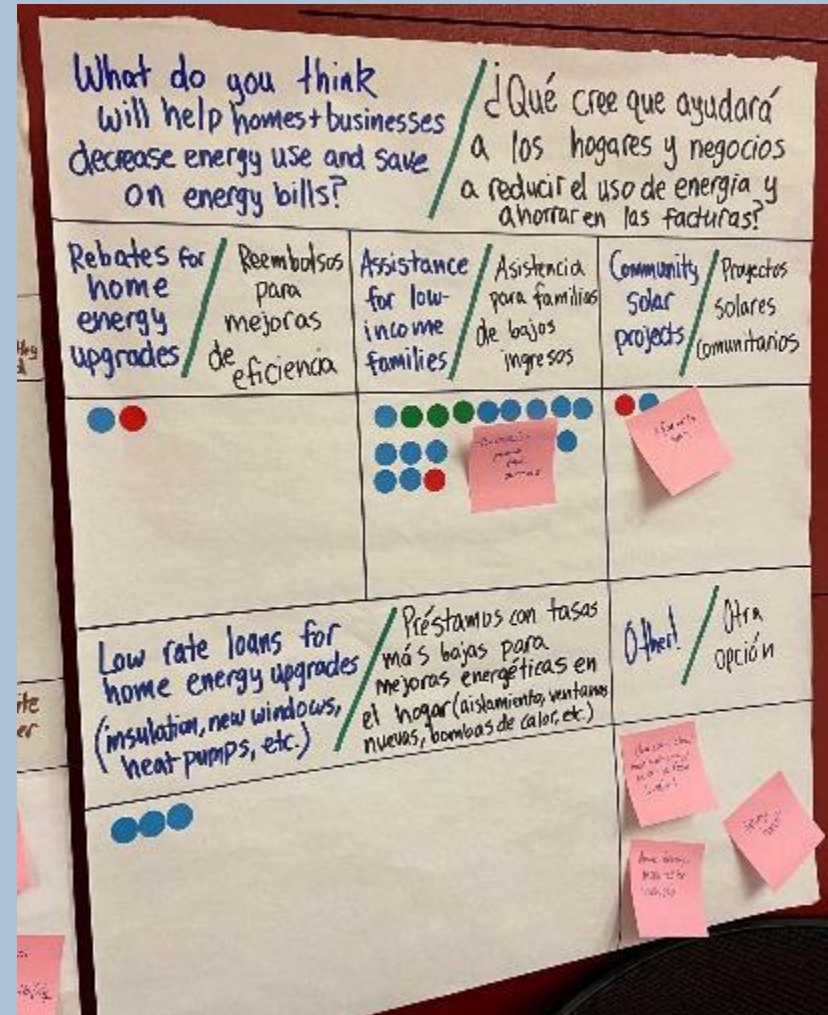 What do you think
will help homes+businesses
decrease energy use and save
on energy bills?
¿Qué cree que ayudará
a los hogares y negocios
a reducir el uso de energía y
ahorrar en las facturas?
Rebates for
home
energy
upgrades
Reembolsos
para
mejoras
de eficiencia
Assistance
for low-
income
families
Asistencia
para familias
de bajos
ingresos
Community
Solar
projects
Proyectos
solares
comunitarios
Low rate loans for
home energy upgrades
(insulation, new windows,
heat pumps, etc.)
Préstamos con tasas
más bajas para
mejoras energéticas en
el hogar (aislamiento, ventanas
nuevas, bombas de calor, etc.)
Other!
Otra
opción